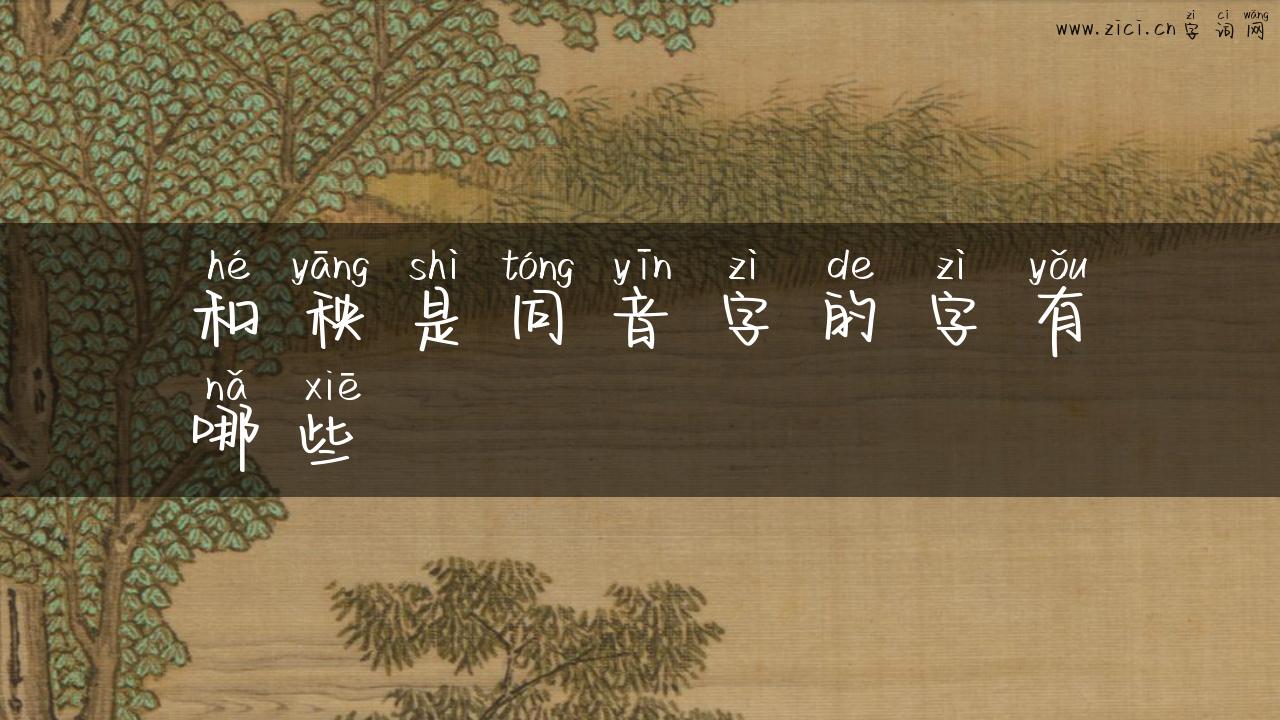 zì cí wǎng
www.zici.cn 字词网
hé yāng shì tóng yīn zì de zì yǒu
和秧是同音字的字有
nǎ xiē
哪些